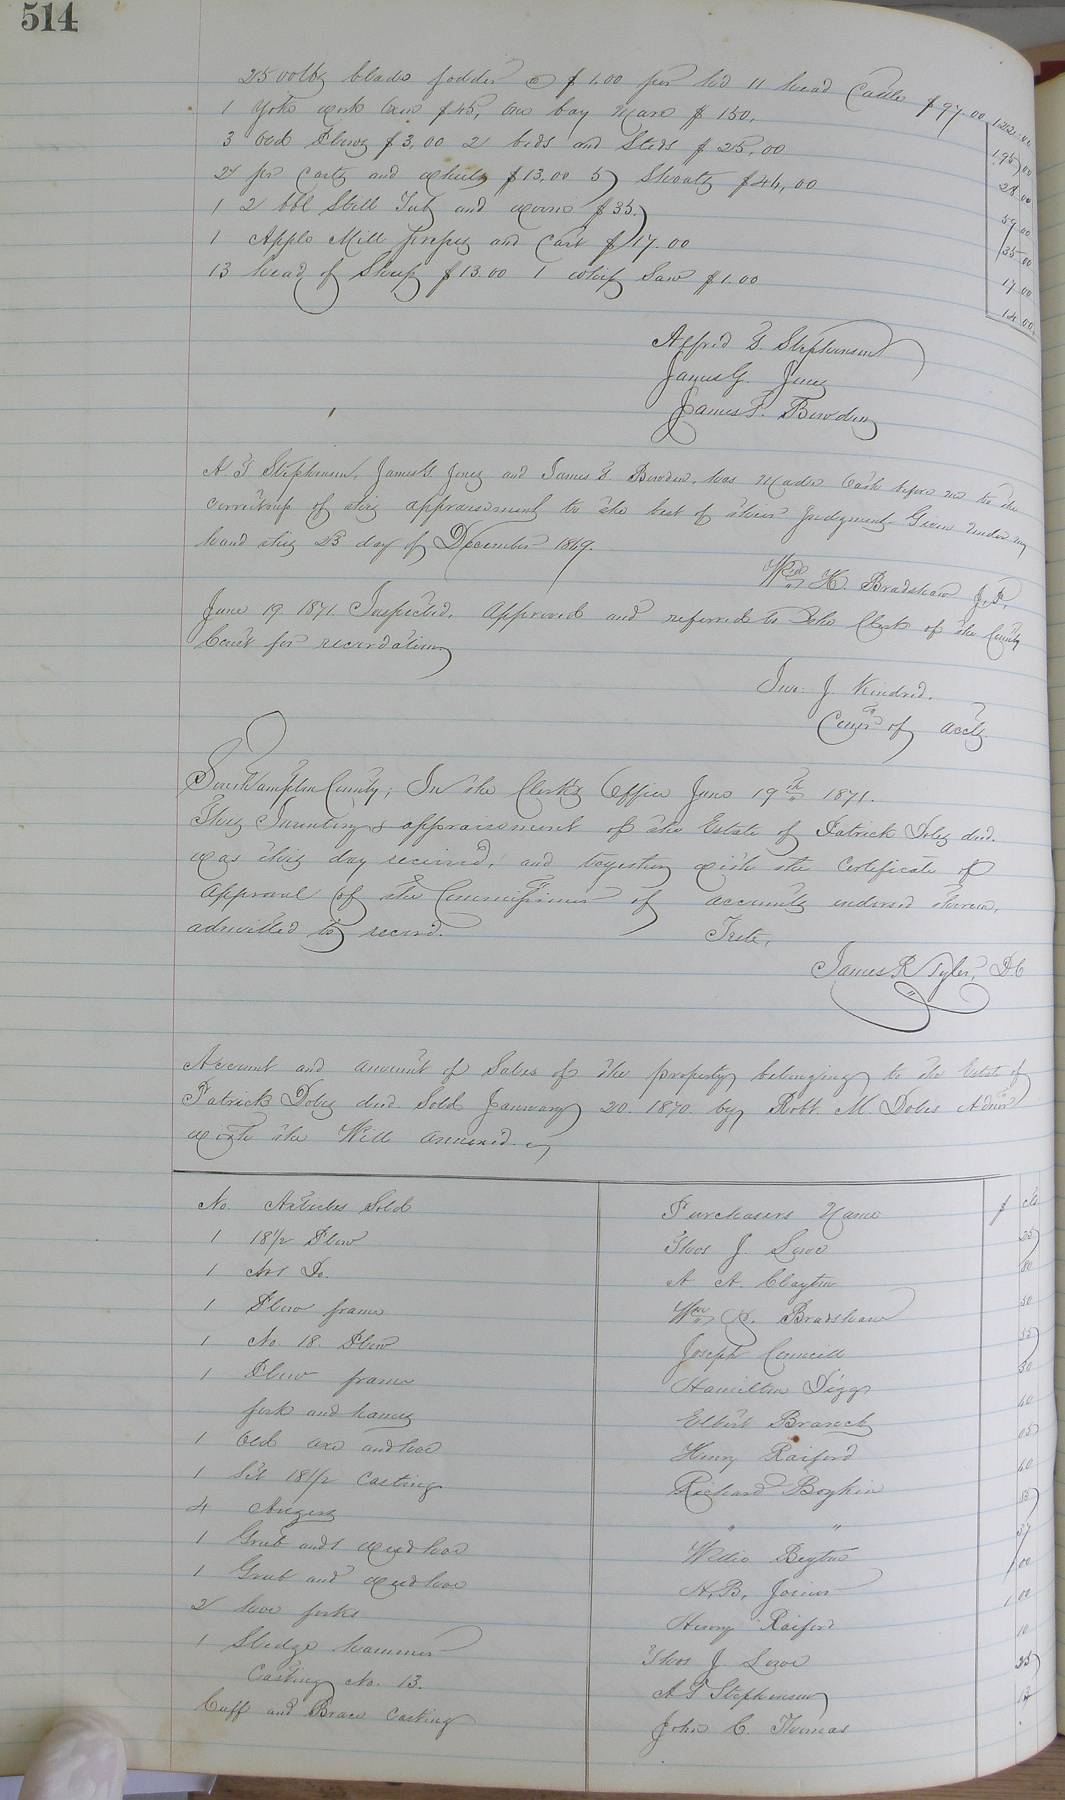 514
2500 lbs blade fodder @ $1.00 per hd 11 head Cattle $97.00 122.00
1 Yoke work Oxen $45, One bay Mare $150. 195.00
3 Old Plows $3.00 2 beds and Steds $25.00 28.00
2 pr carts and wheels $13.00 5 Shoats $44.00 57.00
1 2 bbl Still Tub and worm $35. 35.00
1 Apple Mill and Cart $17.00 17.00
13 head of Sheep $13.00 1 whip Saw $1.00 14.00
Alfred T. Stephenson
James G. Jones
James T. Bowden
A. T Stephenson, James G. Jones and James T. Bowden, has made Oath before me to the
correctness of this appraisement to the best of their Judgment. Given under my
hand this 23 day of December 1869.
Wm H. Bradshaw J.P.
June 19. 1871. Inspected, Approved and referred to the Clerk of the County
Court for recordation
Jno. J. Kindred.
Comr of Accts.
Southampton County; In the Clerk's Office June 19th 1871.
This Inventory & appraisement of the Estate of Patrick Doles decd.
was this day received, and together with the Certificate of
Approval of the Commissioner of accounts endorsed thereon,
admitted to record.
Teste,
James R Tyler, DC
Account and amount of Sales of the property belonging to the Estate of
Patrick Doles decd. Sold January 20. 1870 by Robt. M. Doles Admr
with the Will annexed
No. Articles Sold Purchasers Name $ cts
1 18 1/2 Plow Thos J. Lowe 25
1 Do. A. A. Clayton 80
1 Plow frame Wm H. Bradshaw 50
1 No. 18. Plow Joseph Councill 55
1 Plow frame Hamilton Diggs 50
fork and hames Elbert Branch 40
1 Old axe and hoe Henry Raiford 05
1 Set 18 1/2 Castings Richard Boykin 40
4 Augers " "
1 Grub and weed hoe Willie 37
1 Grub and weed hoe N. B. Joiner 00
2 hoe forks Henry Raiford 1 00
1 Sledge hammer Thos J. Lowe 10
Castings No. 13. A T Stephenson 25
Cuff and Brace Castings John C. Thomas 12